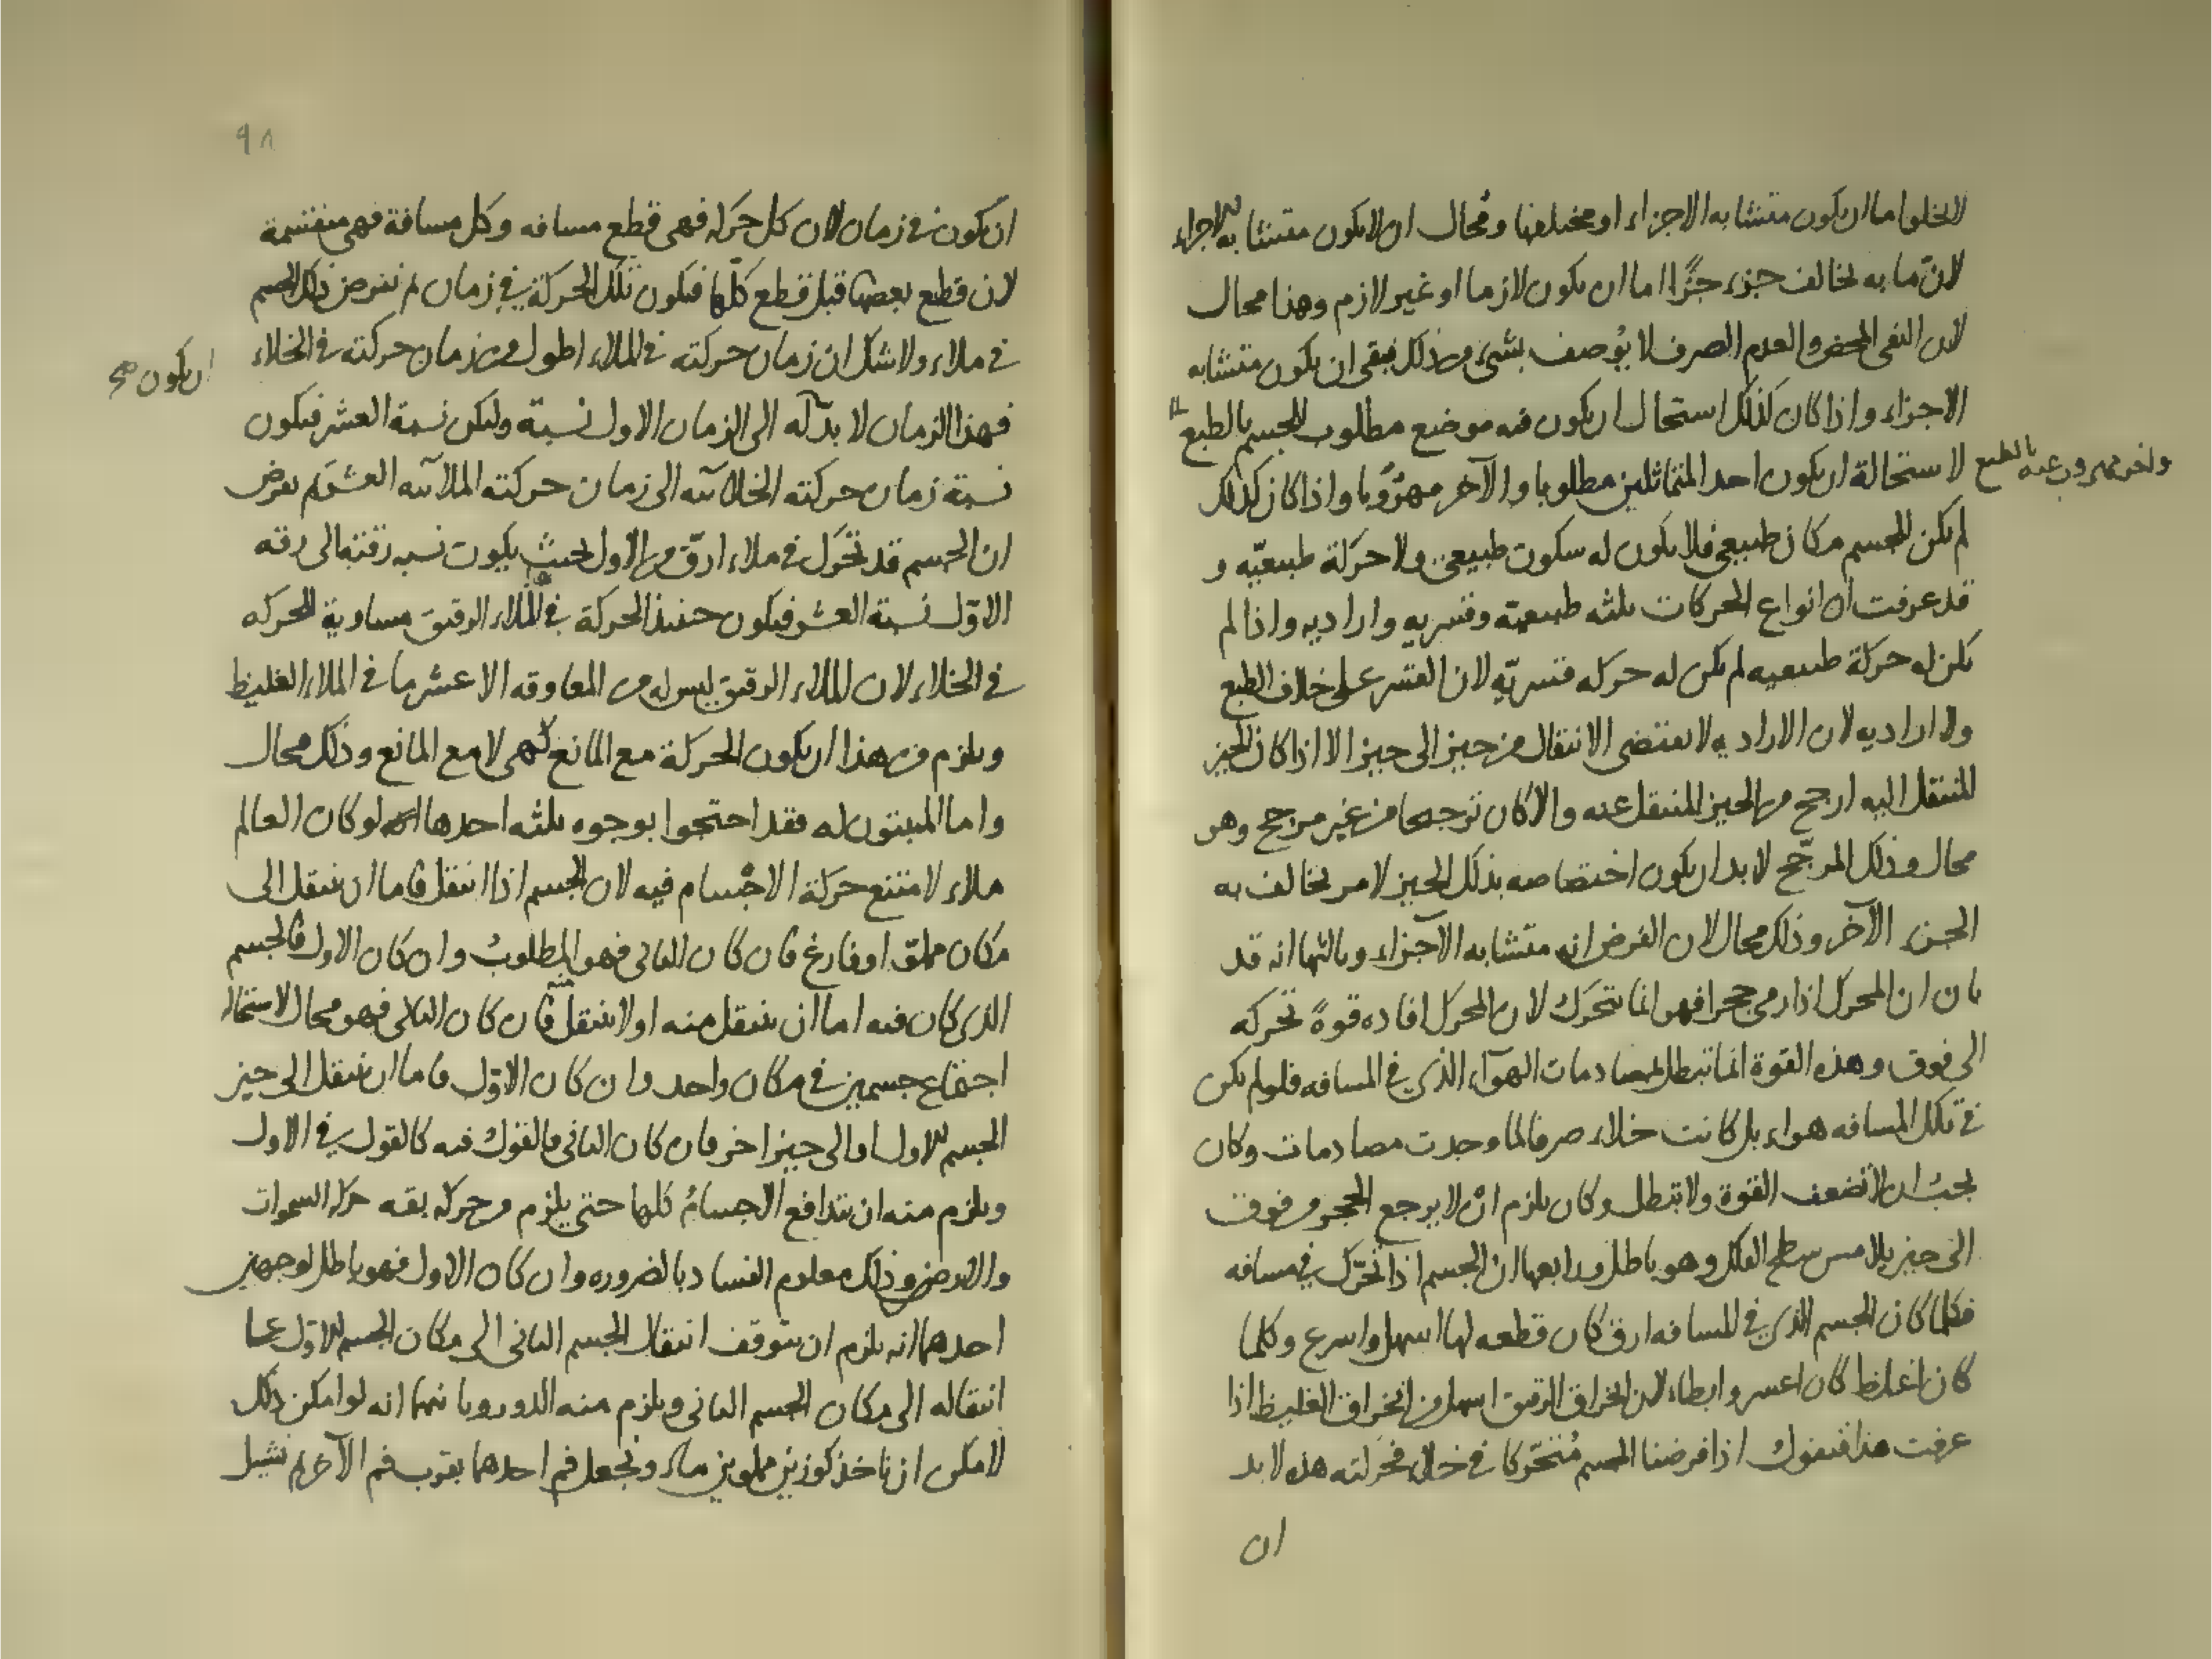 لا يخلو اما ان يكون متشابه الاجزاء او مختلفها ومُحال ان لا يكون متشابه الاجزاء
لانّ ما به يخالف جزء جزًا اما ان يكون لازما او غير لازم وهذا محال
لان النفى المحض والعدم الصرف لا يُوصف بشىء من ذلك فبقى ان يكون متشابه
الاجزاء واذا كان كذلك استحال ان يكون فيه موضع مطلوب للجسم بالطبع
واخر مهروب عنه بالطبع
لاستحالة ان يكون احد المتماثلين مطلوبا والآخر مهرُوبا واذا كان كذلك
لم يكن للجسم مكان طبيعى فلا يكون له سكون طبيعى ولا حركة طبيعيّه و
قد عرفت ان انواع الحركات ثلثه طبيعيّه وقسريه واراديه واذا لم
يكن له حركة طبيعيه لم يكن له حركه قسريّه لان القسر على خلاف الطبع
ولا اراديه لان الاراديه لا تقتضى الانتقال من حيز الى حيز الا اذا كان الحيز
المنتقل اليه ارجح من الحيز المنتقل عنه والا كان ترجيحا من غير مرجح وهو
محال وذلك المرجّح لا بد ان يكون اختصاصه بذلك الحيز لامر يخالف به
الحيز الآخر وذلك محال لان الفرض انه متشابه الاجزاء وثالثها انه قد
بان ان المحرك اذا رمى حجرا فهو انما يتحرك لان المحرك افاده قوةً تحركه
الى فوق وهذه القوة انما تبطل لمصادمات الهوآء الذى فى المسافه فلو لم يكن
فى تلك المسافه هواء بل كانت خلاء صرفا لما وجدت مصادمات وكان
يجب ان لا تضعف القوة ولا تبطل وكان يلزم ان لا يرجع الحجر من فوق
الى حيز يلامس سطح الفلك وهو باطل ورابعها ان الجسم اذا تحرّك فى مسافه
فكلما كان الجسم الذى فى المسافه ارق كان قطعه لها اسهل واسرع وكلما
كان اغلظ كان اعسر وابطاء لان انخراق الرقيق اسهل من انخراق الغليظ اذا
عرفت هذا فنقول اذا فرضنا الجسم مُتحّركا فى خلاء فحركته هذه لا بد
ان
٩٨
ان يكون فى زمان لان كل حركه فهى قطع مسافه وكل مسافة فهى منقسمة
لان قطع بعضها قبل قطع كلّها فيكون تلك الحركة فى زمان ثم نفرض ذلك الجسم
فى ملاء ولا شك ان زمان حركته فى الملاء اطول من زمان حركته فى الخلاء
ان يكون صح
فهذا الزمان لا بدّ له الى الزمان الاول نسبة وليكن نسبة العشر فيكون
نسبة زمان حركته الخلائيه الى زمان حركته الملائيه العشر ثم نفرض
ان الجسم قد تحرك فى ملاء ارقّ من الاول بحيث يكون نسبه رقته الى رقه
الاوّل نسبة العشر فيكون حينئذ الحركة فى الملاء الرقيق مساوية للحركه
فى الخلاء لان الملاء الرقيق ليس له من المعاوقه الا عشر ما فى الملاء الغليظ
ويلزم من هذا ان يكون الحركة مع المانع كهى لا مع المانع وذلك محال
واما المثبتون له فقد احتجوا بوجوه ثلثه احدها انه لو كان العالم
ملاء لامتنع حركة الاجسام فيه لان الجسم اذا انتقل فاما ان ينتقل الى
مكان مملوّ او فارغ فان كان الثانى فهو المطلوب وان كان الاول فالجسم
الذى كان فيه اما ان ينتقل منه او لا ينتقل فان كان الثانى فهو محال لاستحالة
اجتماع جسمين فى مكان واحد وان كان الاوّل فاما ان ينتقل الى حيز
الجسم الاول او الى حيز اخر فان كان الثانى فالقول فيه كالقول فى الاول
ويلزم منه ان تتدافع الاجسامُ كلها حتى يلزم من حركه بقه حركة السموات
والارض وذلك معلوم الفساد بالضروره وان كان الاول فهو باطل لوجهين
احدهما انه يلزم ان يتوقف انتقال الجسم الثانى الى مكان الجسم الاوّل على
انتقاله الى مكان الجسم الثانى ويلزم منه الدور وثانيهما انه لو امكن ذلك
لامكن ان ناخذ كوزين مملوين ماء ونجعل فم احدهما بقرب فم الآخر ثم نشيل